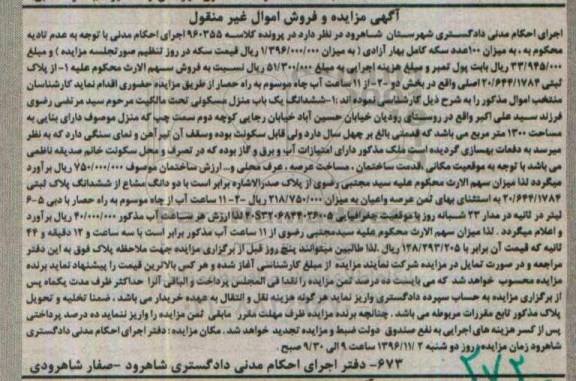 آگهی مزایده و فروش اموال غیر منقول
اجرای احکام مدنی دادگستری شهرستان شاهرود در نظر دارد در پرونده کلاسه ۹۶۰۳۵۵ اجرای احکام مدنی با توجه به عدم تادیه
محکوم به ، به میزان ۱۰۰عدد سکه کامل بهار آزادی ( به میزان ۱/۳۹۶/۰۰۰/۰۰۰ ریال قیمت سکه در روز تنظیم صورتجلسه مزایده ) و مبلغ
۳۳/۹۴۵/۰۰۰ ریال بابت پول تمبر و مبلغ هزینه اجرایی به مبلغ ۵۱/۳۰۰/۰۰۰ ریال نسبت به فروش سهم الارث محکوم علیه ۱- از پلاک
ثبتی ۳۰/۶۴۴/۱۷۸۴ اصلی واقع در بخش دو ۲- از ۱۱ ساعت آب چاه موسوم به راه حصار از طریق مزایده حضوری اقدام نماید کارشناسان
منتخب اموال مذکور را به شرح ذیل کارشناسی نموده اند :۱-ششدانگ یک باب منزل مسکونی تحت مالکیت مرحوم سید مرتضی رضوی
فرزند سید علی اکبر واقع در روستای رودیان خیابان حسین آباد خیابان رجایی کوچه دوم سمت چپ که منزل موصوف دارای بنایی به
مساحت ۱۳۰۰ متر مربع می باشد که قدمتی بالغ بر چهل سال دارد ولی قابل سکونت بوده وسقف آن تیرآهن و نمای سنگی دارد که به نظر
میرسد به دفعات بهسازی گردیده است ملک مذکور دارای امتیازات آب و برق و گاز بوده که در تصرف و محل سکونت خانم صدیقه ناظمی
می باشد با توجه به موقعیت مکانی ،قدمت ساختمان ، مساحت عرصه ، عرف محلی و... ارزش ساختمان موصوف ۷۵۰/۰۰۰/۰۰۰ ریال برآورد
میگردد لذا میزان سهم الارث محکوم علیه سید مجتبی رضوی از پلاک صدرالاشاره برابر است با دو دانگ مشاع از ششدانگ پلاک ثبتی
۳۰/۶۴۴/۱۷۸۴ به استثنای بهای ثمن عرصه واعیان به میزان ۲۱۸/۷۵۰/۰۰۰ ریال ۲-۱۱ ساعت آب از چاه موسوم به راه حصار با دبی ۵-۶
لیتر در ثانیه در مدار ۳۳ شبانه روز با موقعیت جغرافیایی لذا ارزش هر ساعت آب مذکور ۴۰/۰۰۰/۰۰۰ ریال برآورد
و اعلام میگردد . لذا میزان سهم الارث محکوم علیه سیدمجتبی رضوی از ۱۱ ساعت آب مذکور برابر است با سه ساعت و ۱۲ دقیقه و ۴۴
ثانیه که قیمت آن برابر با ۱۲۸/۲۹۳/۲۰۵ ریال .لذا طالبین میتوانند پنج روز قبل از برگزاری مزایده جهت ملاحظه پلاک فوق به این دفتر
مراجعه و در صورت تمایل در مزایده شرکت نمایند مزایده از مبلغ کارشناسی آغاز شده و هر کس بالاترین قیمت را پیشنهاد نماید برنده
مزایده محسوب خواهد شد که می بایست ده درصد ثمن مزایده را نقدا فی المجلس پرداخت و الباقی آنرا حداکثر ظرف مدت یکماه پس
از برگزاری مزایده به حساب سپرده دادگستری واریز نماید هر گونه هزینه نقل و انتقال به عهده خریدار می باشد . ضمنا تخلیه و تحویل
پلاک مذکور تابع مقررات مربوطه می باشد . چنانچه برنده مزایده ظرف مهلت مقرر مابقی ثمن مزایده را واریز ننماید ده درصد پرداختی
پس از کسر هزینه های اجرایی به نفع صندوق دولت ضبط و مزایده تجدید خواهد شد . مکان مزایده : دفتر اجرای احکام مدنی دادگستری
شاهرود زمان مزایده روز دو شنبه ۱۳۹۶/۱۱/۲ ساعت ۹ الی ۹/۳۰ صبح .
۶۷۳- دفتر اجرای احکام مدنی دادگستری شاهرود -صفار شاهرودی